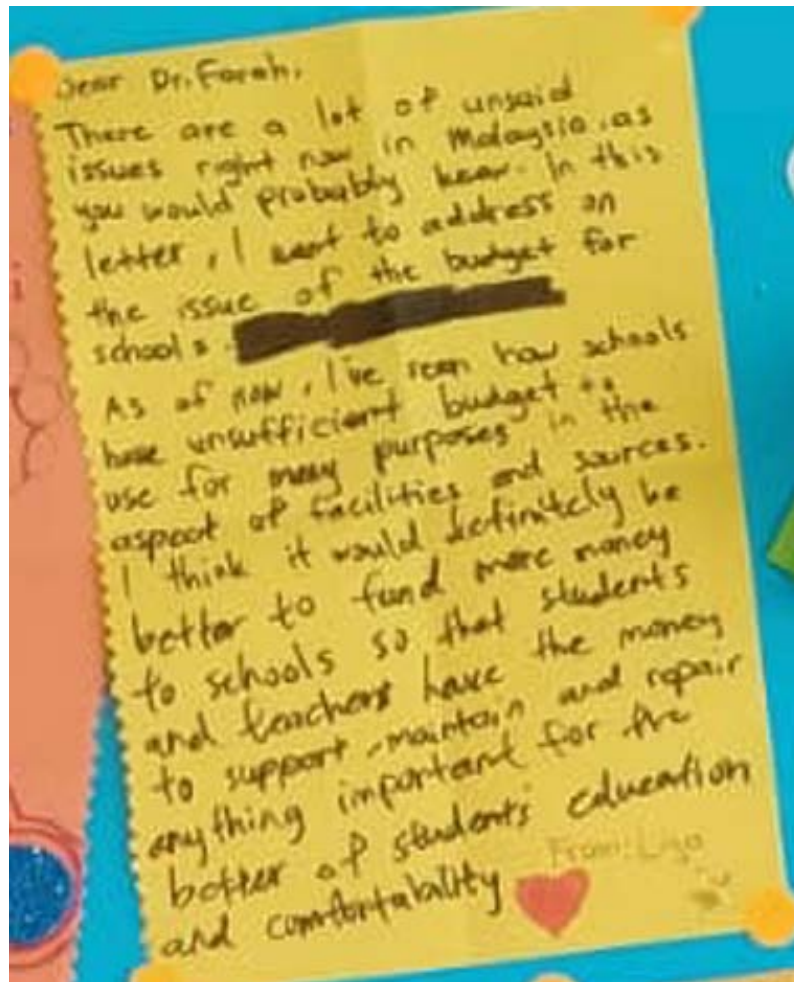 Dear Dr. Farah,
There are a lot of unsaid
issues right now in Malaysia, as
you would probably hear. In this
letter, I want to address on
the issue of the budget for
schools.
As of now, I've seen how schools
have unsufficient budget to
use for many purposes in the
aspect of facilities and sources.
I think it would definitely be
better to fund more money
to schools so that students
and teachers have the money
to support, maintain and repair
anything important for the
better of students' education
and comfortability
From: Liya